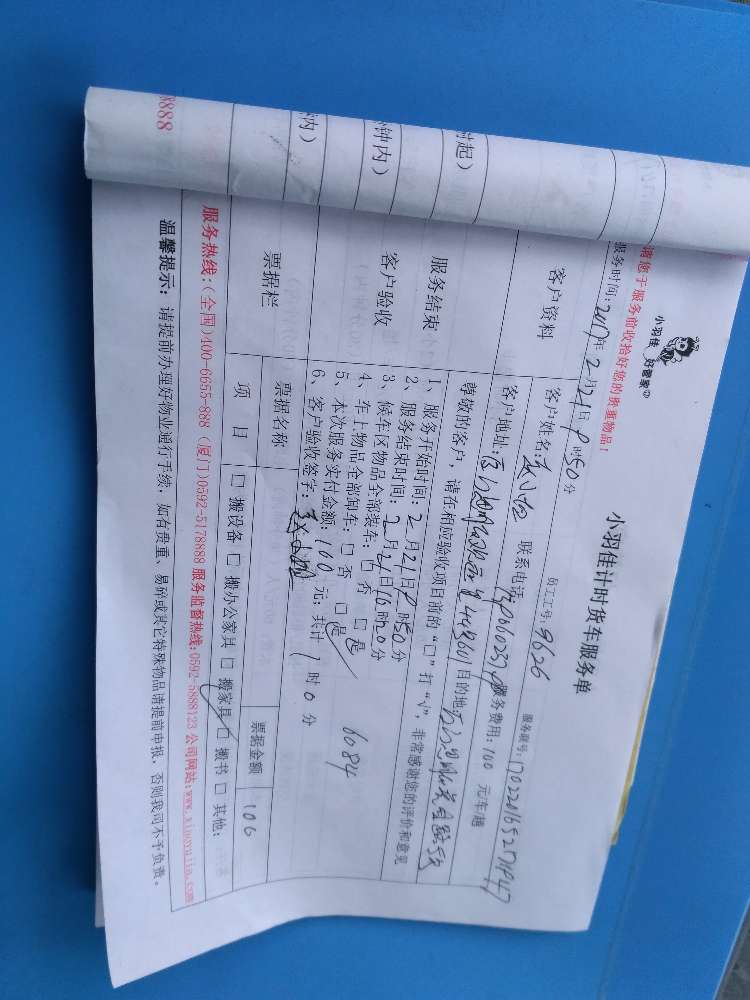 小羽佳 好管家®
小羽佳计时货车服务单
请您于服务前收拾好您的贵重物品！
员工工号：9626
服务联号：
服务时间：2017年2月21日9时50分
客户资料
客户姓名：
联系电话：
服务费用：100 元/车/趟
客户地址：
目的地：
尊敬的客户，请在相应验收项目前的“□”打“√”，非常感谢您的评价和意见
时起）
服务结束
1、服务开始时间：2月21日9时50分
2、服务结束时间：2月21日10时50分
钟内）
客户验收
3、候车区物品全部装车：□ 否 □ 是
4、车上物品全部卸车：□ 否 □ 是
6084
5、本次服务实付金额：100 元；共计 1 时 0 分
6、客户验收签字：
内）
票据栏
票据名称
票据金额
100
项 目
□ 搬设备 □ 搬办公家具 □ 搬家具 □ 搬书 □ 其他：
8888
服务热线：(全国)400-6655-888 (厦门)0592-5178888 服务监督热线：0592-5888123 公司网站：www.xiaoyujia.com
温馨提示：请提前办理好物业通行手续，如有贵重、易碎或其它特殊物品请提前申报，否则我司不予负责。